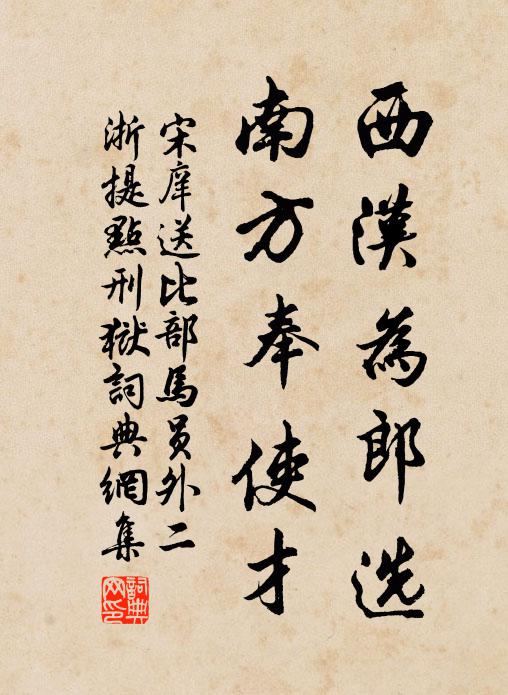 西漢為郎选
南方奉使才
宋庠送比部馬员外二
浙提點刑獄詞典網集
詞典
网印